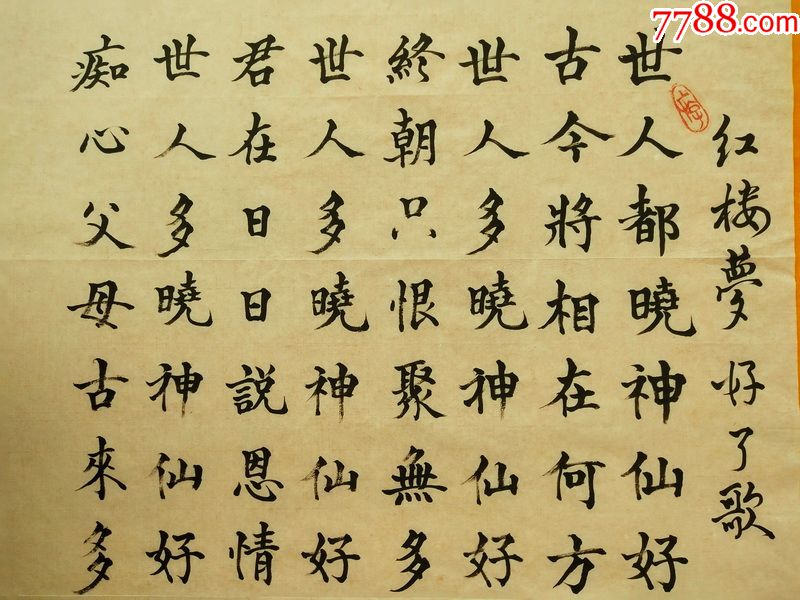 红楼夢好了歌
世人都曉神仙好
古今將相在何方
世人多曉神仙好
終朝只恨聚無多
世人多曉神仙好
君在日日説恩情
世人多曉神仙好
痴心父母古來多
7788.com